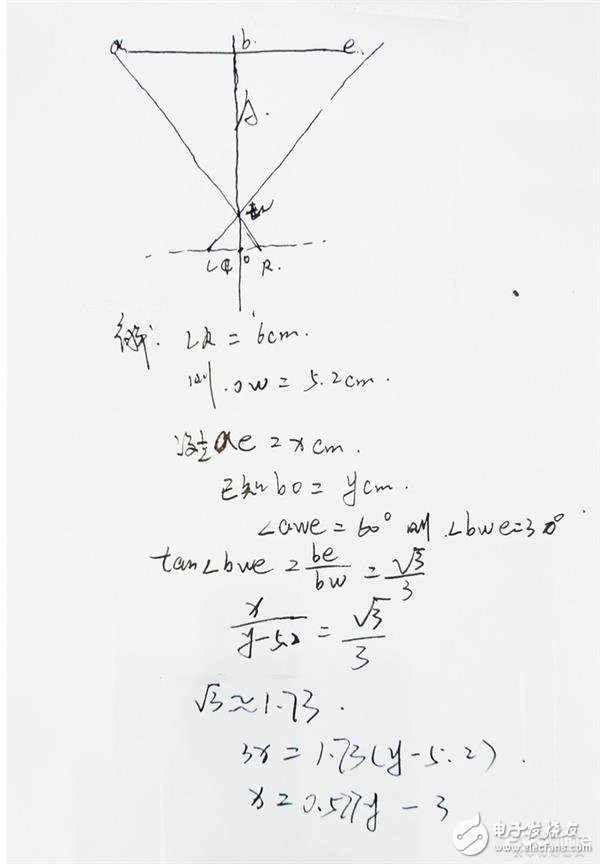 a b. e.
y.
w
L O R.
解: LR = 6cm.
则.ow = 5.2cm.
设ae = xcm.
已知bo = ycm.
∠awe = 60° 则.∠bwe=30°
tan∠bwe = be/bw = √3/3
x/y-5.2 = √3/3
√3≈1.73.
3x = 1.73(y-5.2).
x = 0.577y - 3
电子发烧友
www.elecfans.com